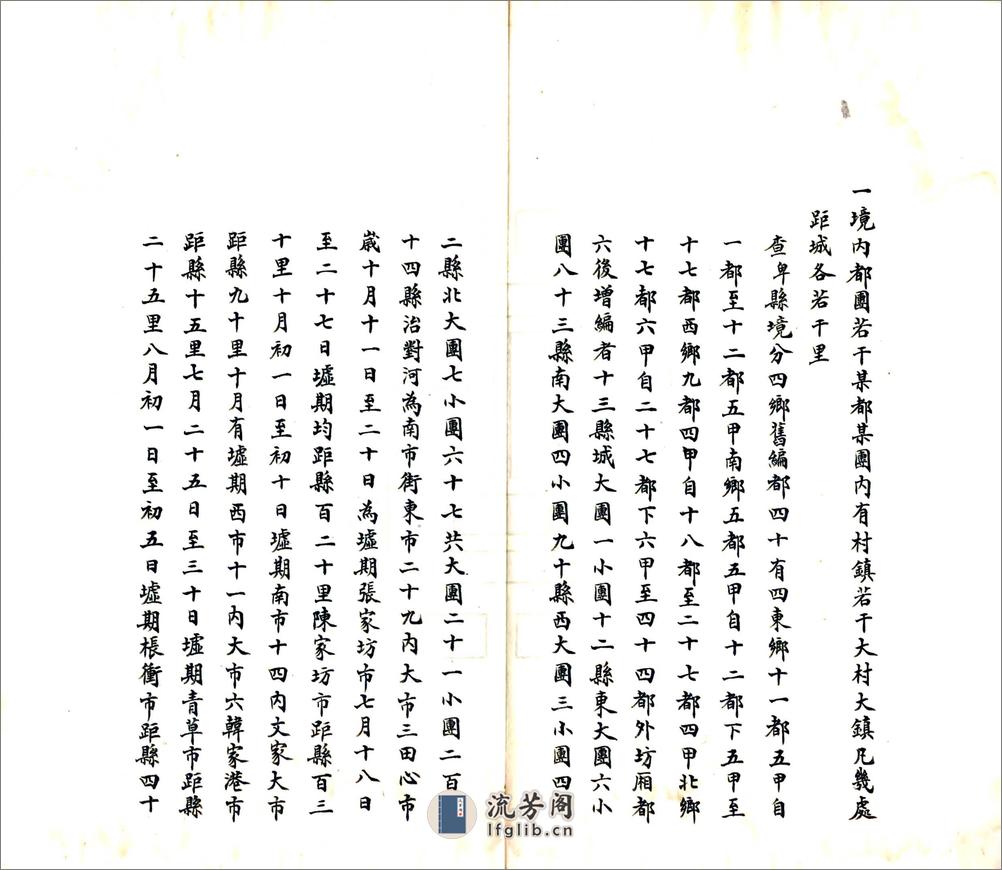 一境內都團若干某都某團內有村鎮若干大村大鎮凡幾處
距城各若干里
查卑縣境分四鄉舊編都四十有四東鄉十一都五甲自
一都至十二都五甲南鄉五都五甲自十二都下五甲至
十七都西鄉九都四甲自十八都至二十七都四甲北鄉
十七都六甲自二十七都下六甲至四十四都外坊厢都
六後增編者十三縣城大團一小團十二縣東大團六小
團八十三縣南大團四小團九十縣西大團三小團四
二縣北大團七小團六十七共大團二十一小團二百
十四縣治對河為南市街東市二十九內大市三田心市
嵗十月十一日至二十日為墟期張家坊市七月十八日
至二十七日墟期均距縣百二十里陳家坊市距縣百三
十里十月初一日至初十日墟期南市十四內文家大市
距縣九十里十月有墟期西市十一內大市六韓家港市
距縣十五里七月二十五日至三十日墟期青草市距縣
二十五里八月初一日至初五日墟期棖衝市距縣四十
流芳阁
lfglib.cn